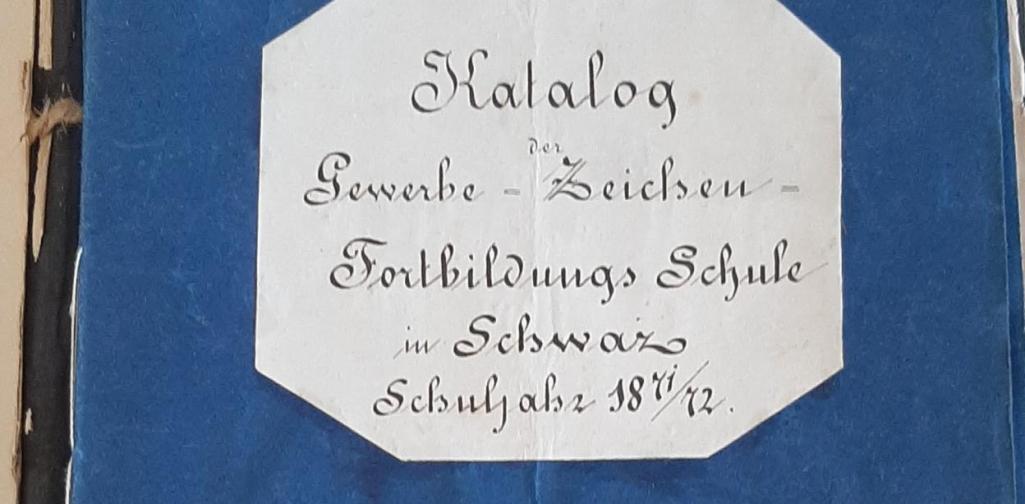 Katalog
der
Gewerbe - Zeichen -
Fortbildungs Schule
in Schwaz
Schuljahr 1871/72.